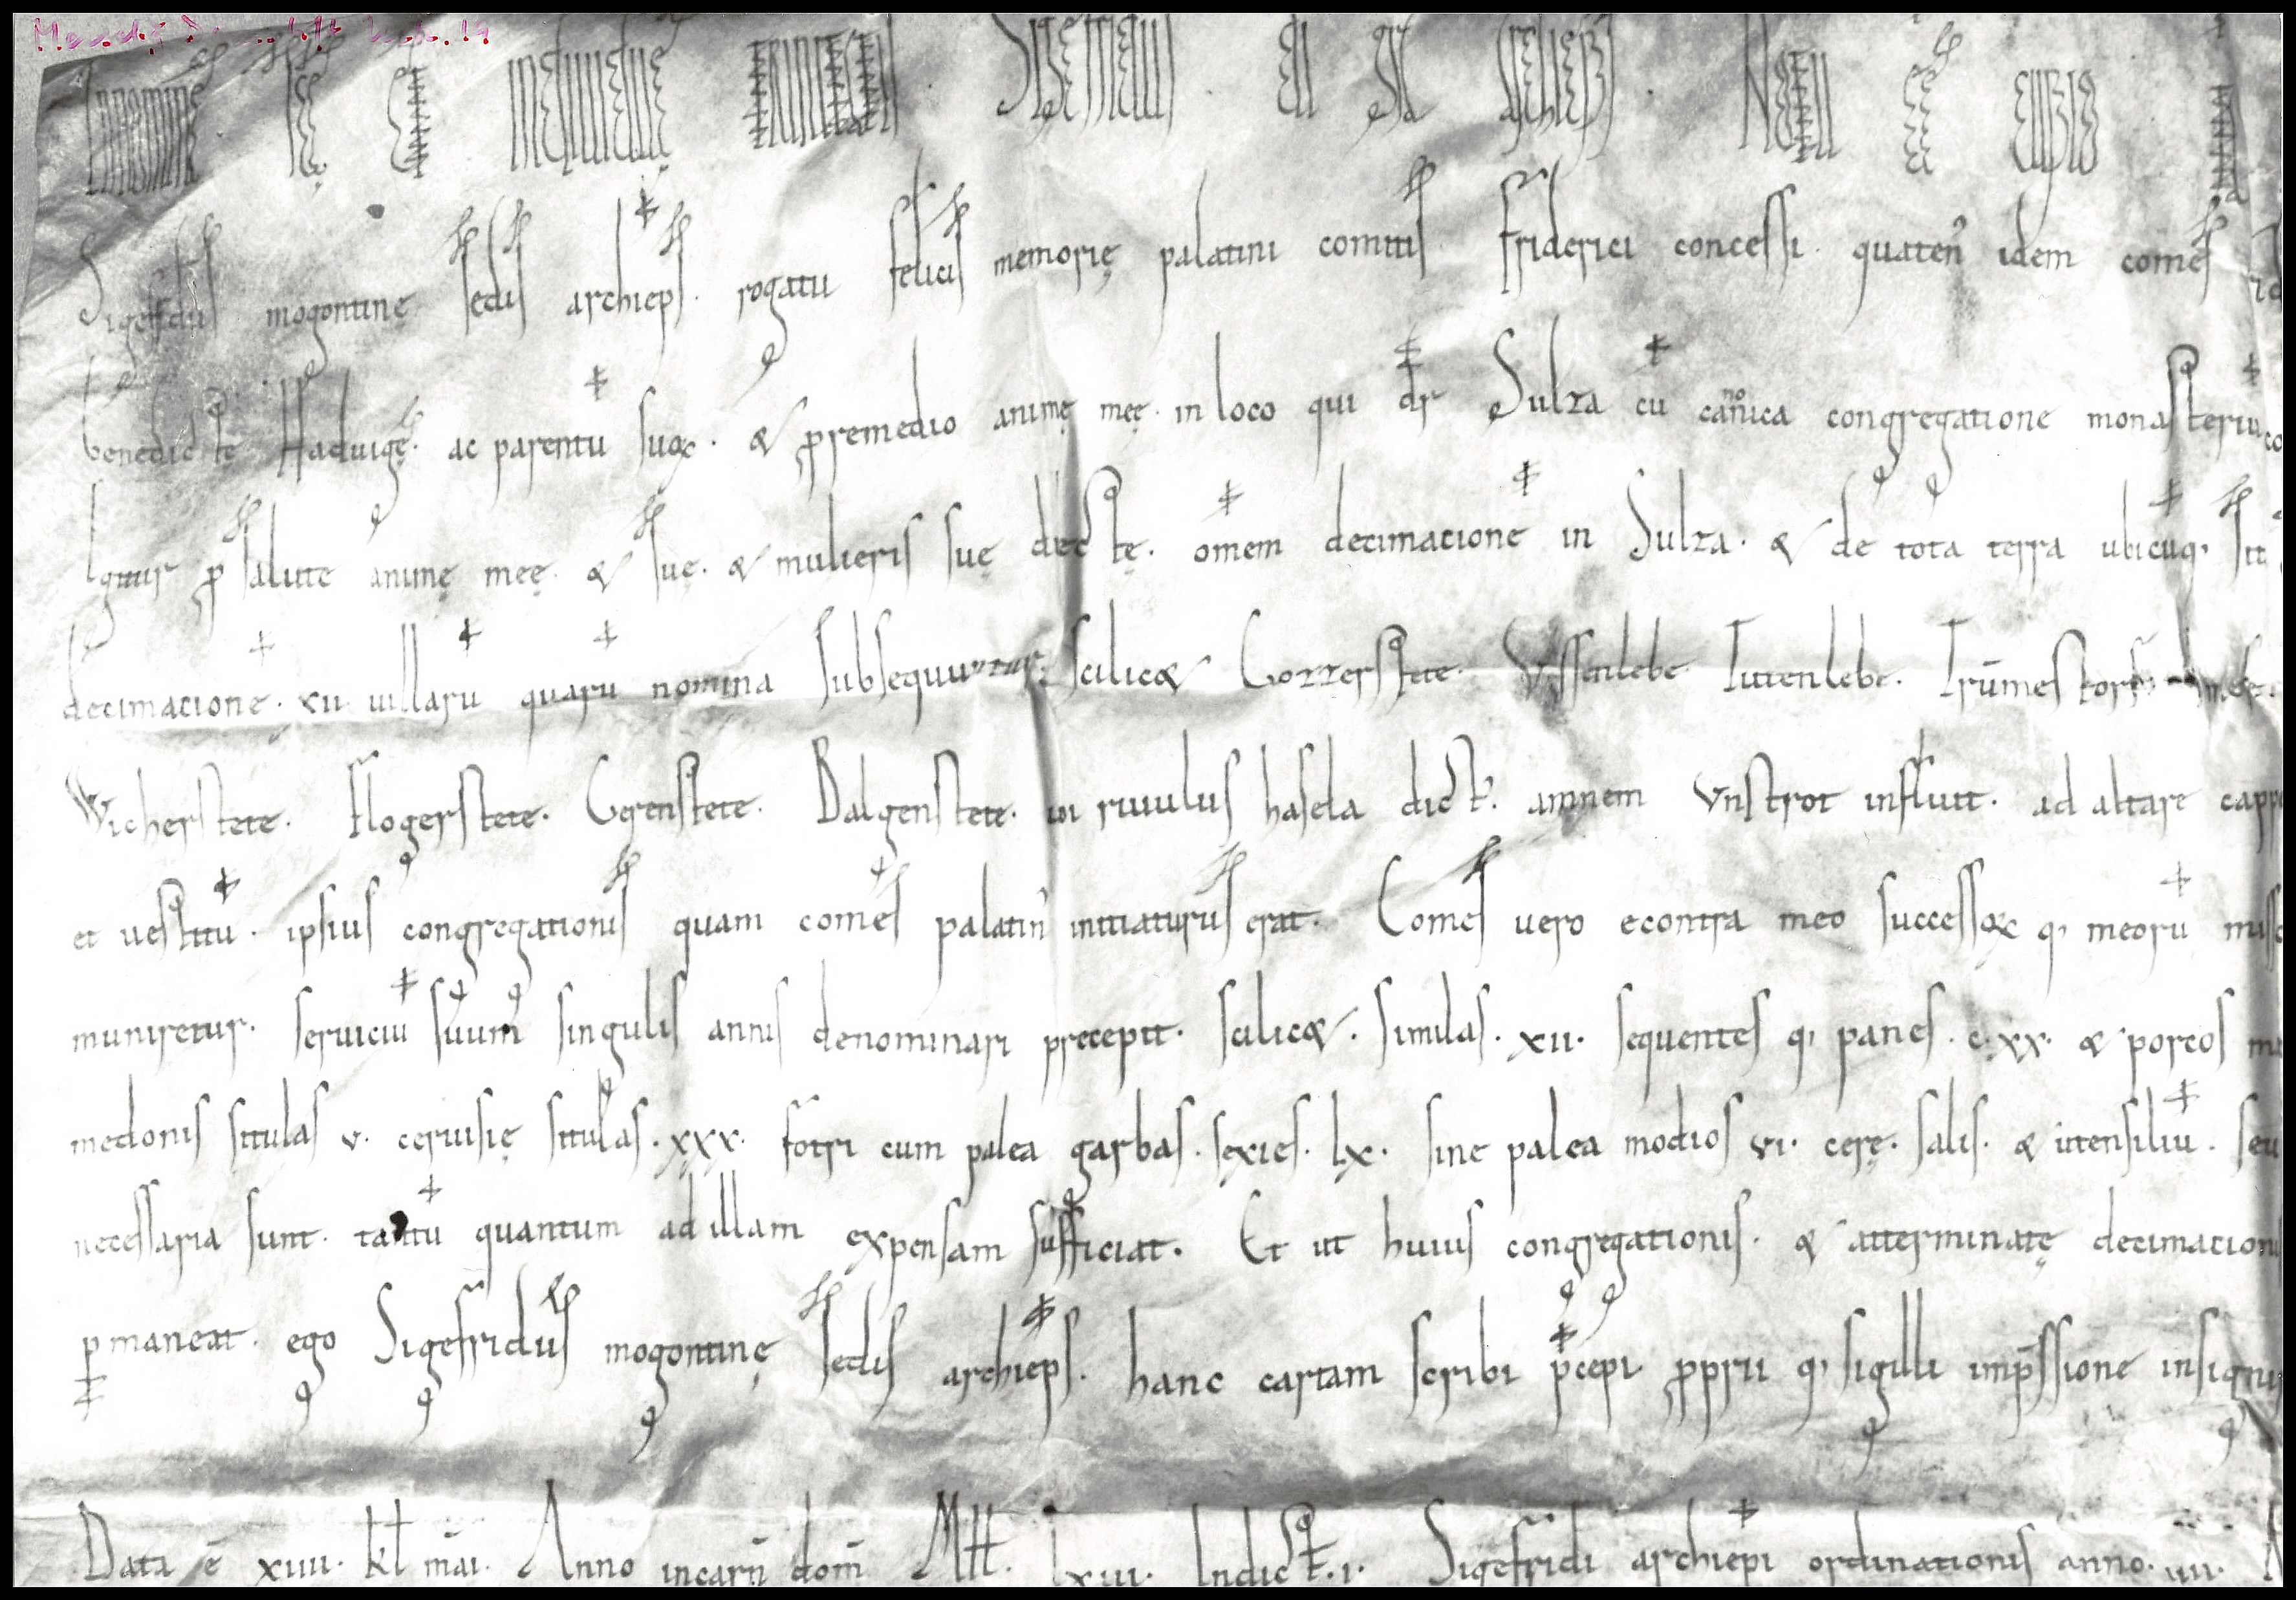 In nomine scę et indiuiduę trinitatis Sigefridus di gra archieps. Notu ee cupio
Sigefridus mogontinę sedis archieps. rogatu felicis memorię palatini comitis friderici concessi. quaten' idem comes
benedictę Haduigę. ac parentu suoꝝ. & p remedio animę meę. in loco qui dr Sulza cu canonica congregatione monasteriu
Igitur ꝓ salute animę meę. & suę. & mulieris suę dectę. omem decimacione in Sulza. & de tota terra ubicuq; sit
decimacione. xii. uillaru quaru nomina subsequuntur. scilic& Gozzerstete. Vssenlebe Tutenlebe. Trumestorf.
Wicherstete. Flogerstete. Gerenstete. Balgenstete. ubi riuulus hasela dict'. amnem Vnstrot influit. ad altare
et uestitu. ipsius congregationis quam comes palatin' initiaturus erat. Comes uero econtra meo successoꝝ q; meoru
muniretur. seruiciu suum singulis annis denominari precepit. scilic&. similas. xii. sequentes q; panes. c.xx. & porcos
medonis situlas v. ceruisię situlas. xxx. fotri cum palea garbas. sexies. lx. sine palea modios vi. cerę. salis. & utensiliu. seu
necessaria sunt. tantu quantum ad illam expensam sufficiat. Et ut huius congregationis. & atterminatę decimacionis
ꝑmaneat. ego Sigefridus mogontinę sedis archieps. hanc cartam scribi p̄cepi ꝓprii q; sigilli imp̄ssione
Data ē xiiii. kl mai. Anno incarn̄ dom̄ Mill. lxiii. Indict. i. Sigefridi archiepi ordinationis anno. iiii.